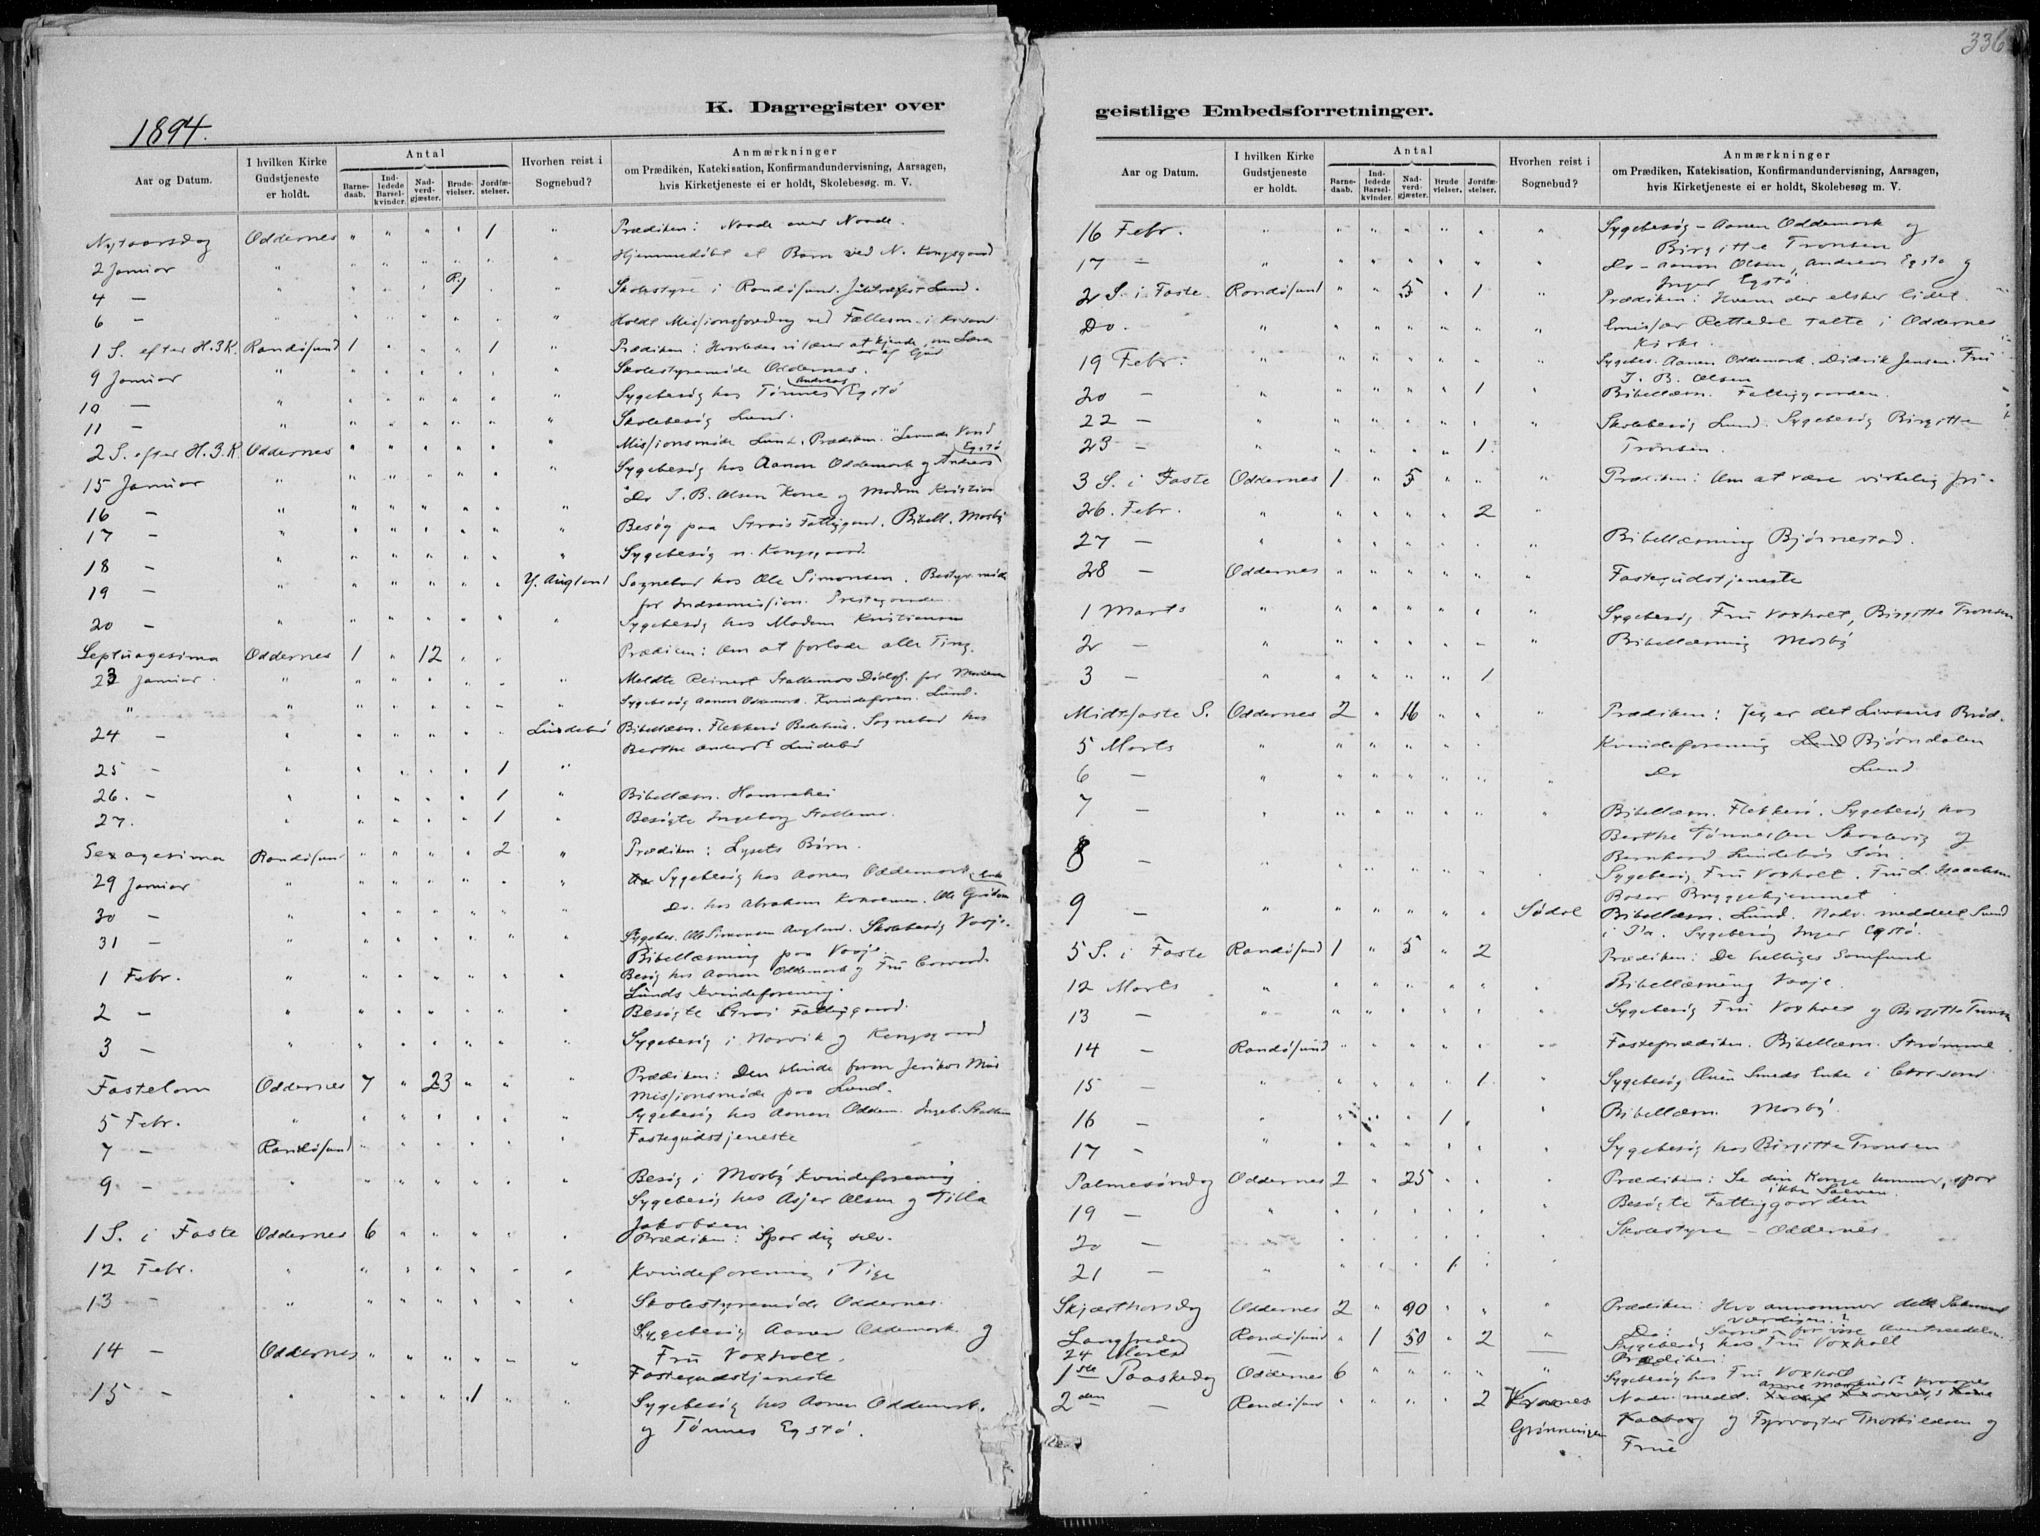 336
K. Dagregister over
geistlige Embedsforretninger.
1894.
Aar og Datum.
I hvilken Kirke Gudstjeneste er holdt.
Antal
Barnedaab.
Indledede Barselkvinder.
Nadverdgjæster.
Brudevielser.
Jordfæstelser.
Hvorhen reist i Sognebud?
Anmærkninger
om Prædiken, Katekisation, Konfirmandundervisning, Aarsagen,
hvis Kirketjeneste ei er holdt, Skolebesøg m. V.
Nytaarsdag Oddernes " " " " 1 " Prædiken: Naade over Naade.
2 Januar " " " " " " " Hjemmedøbt et Barn ved N. Kongsgaard
4 — " " " " " Skolestyre i Randøsund. Juletræfest Lund.
6 — " " " " " " " Holdt Missionsforedrag ved Fællesm. i Krsand
1 S. efter H.3K. Randøsund 1 " " " 1 " Prædiken: Hvorledes vi lærer at kjende, om Læren er af Gud
9 Januar " " " " " " " Skolestyremøde Oddernes.
10 — " " " " " " " Sygebesøg hos Tønnes Andreas Egstø
11 — " " " " " " " Skolebesøg Lund.
2 S. efter H.3.K Oddernes " " " " " " Missionsmøde Lund. Prædiken. "Levende Vand
15 Januar " " " " " " " Sygebesøg hos Aanon Oddemark og Andreas Egstø
16 — " " " " " " " Do J. B. Olsen Kone og Madam Kristian
17 — " " " " " " " Besøg paa Strais Fattiggaard. Bibell. Mosby
18 — " " " " " " " Sygebesøg n. Kongsgaard.
19 — " " " " " " Y. Augland Sognebud hos Ole Simonsen. Bestyr. møde
for Indremission. Prestegaarden.
20 — " " " " " " " Sygebesøg hos Madam Kristiansen
Septuagesima Oddernes 1 " 12 " " Prædiken: Om at forlade alle Ting.
23 Januar. " " " " " " " Meldte Reinert Stallemos Dødsf. for
" " " " " " " " Sygebesøg Aanon Oddemark. Kvindeforen. Lund.
24 — " " " " " " Lindebø Bibellæsn. Flekkerø Bedehus. Sognebud hos
Berthe Anders. Lindebø
25 — " " " " " 1 "
26. — " " " " " 1 " Bibellæsn. Hamrehei
27. " " " " " 1 " Besøgte Ingeborg Stallemo.
Sexagesima Randøsund " " " " 2 " Prædiken: Lysets Børn.
29 Januar " " " " " " " Sygebesøg hos Aanon Oddemark.
30 — " " " " " " " Do. hos Abraham
31 — " " " " " " " Sygebes. Ole Simonsen Augland. Skolebesøg Vaaje.
Bibellæsning paa Vaaje.
1 Febr. " " " " " " " Besøg hos Aanon Oddemark og Fru
Lunds Kvindeforening.
2 — " " " " " " " Besøgte Strai Fattiggaard.
3 — " " " " " " " Sygebesøg i Narvik og Kongsgaard
Fastelavn Oddernes 7 " 23 " " " Prædiken: Den blinde foran Jerikos Mur
Missionsmøde paa Lund.
5 Febr. " " " " " " " Sygebesøg hos Aanon Oddem. Ingeb. Stallem
7 — Randøsund " " " " " " Fastegudstjeneste
9 — " " " " " " " Besøg i Mosby Kvindeforening
Sygebesøg hos Asjer Olsen og Tilla
Jakobsen.
1 S. i Faste Oddernes 6 " " " " " Prædiken: Spar dig selv.
12 Febr. " " " " " " " Kvindeforening i Vige
13 — " " " " " " " Skolestyremøde Oddernes.
Sygebesøg Aanon Oddemark. og
14 — Oddernes " " " " " " Fru Voxholt.
Fastegudstjeneste
15 — " " " " 1 " " Sygebesøg hos Aanon Oddemark.
og Tønnes Egstø.
Aar og Datum.
I hvilken Kirke Gudstjeneste er holdt.
Antal
Barnedaab.
Indledede Barselkvinder.
Nadverdgjæster.
Brudevielser.
Jordfæstelser.
Hvorhen reist i Sognebud?
Anmærkninger
om Prædiken, Katekisation, Konfirmandundervisning, Aarsagen,
hvis Kirketjeneste ei er holdt, Skolebesøg m. V.
16 Febr. " " " " " " " Sygebesøg – Aanon Oddemark og
Birgitte Tronsen
17 — " " " " " " " Do – Aanon Olsen, Andreas Egstø og
Inger Egstø.
2 S. i Faste. Randøsund " " 5 " 1 " Prædiken: Hvem der elsker lidet.
Do. " " " " " " " Emissær Rettedal talte i Oddernes
Kirke.
19 Febr. " " " " " " Sygebes. Aanon Oddemark. Didrik Jensen. Fru
J. B. Olsen
20 — " " " " " 1 " Bibellæsn. Fattiggaarden.
22 — " " " " " " " Skolebesøg Lund. Sygebesøg Birgitte
23 — " " " " " 1. " Tronsen.
3 S. i Faste Oddernes 1 " 5 " " " Prædiken: Om at være virkelig fri.
26. Febr. " " " " " 2 "
27 — " " " " " " " Bibellæsning Bjørnestad.
28 Oddernes " " " " " " Fastegudstjeneste
1 Marts " " " " " " " Sygebesøg Fru Voxholt, Birgitte Tronsen
2 — " " " " " " " Bibellæsning Mosby
3 — " " " " " 1
Midtfaste S. Oddernes 2 " 16 " " " Prædiken: Jeg er det Livsens Brød.
5 Marts " " " " " " Kvindeforening Lund Bjørndalen
6 — " " " " " " " Do Lund.
7 — " " " " " " " Bibellæsn. Flekkerø. Sygebesøg hos
Berthe Tønnesen Skaalevig og
Bernhard Lindebøs Søn.
8 — " " " " " " " Sygebesøg Fru Voxholt. Fru L. Isaachsen
9 — " " " " " " Sødal Bibellæsn. Lund. Nadv. meddelt
Sygebesøg Inger Egstø.
5 S. i Faste Randøsund 1 " 5 " 2 Prædiken: De helliges Samfund
12 Marts " " " " " " " Bibellæsning Vaaje.
13 — " " " " " " " Sygebesøg Fru Voxholt og Birgitte Tronsen
14 — Randøsund " " " " " " Fasteprædiken. Bibellæsn. Strømme.
15 — " " " " " 1. " Sygebesøg Smeds Enke i
16 — " " " " 1 " Bibellæsn. Mosby.
17 — " " " " " " " Sygebesøg hos Birgitte Tronsen
Palmesøndag Oddernes 2 " 25 " " " Prædiken: Se din Konge kommer,
19 — " " " " " " " Besøgte Fattiggaarden
20 — " " " " " " " Skolestyre – Oddernes.
21 — " " " " 1 "
Skjærthorsdag Oddernes 2 " 90 " " " Prædiken: Hvo annammer dette Sakrament
værdigen?
Langfredag Randøsund " 1 50 " 2 Do:
24 Marts — Sygebesøg hos Fru Voxholt
1ste Paaskedag Oddernes 6 " " " " " Prædiken:
Sygebesøg hos Fru Voxholt
2den — Randøsund " " " " 2 Kraanes Nadv. medd.
Grønningen og Fyrvogter Thorkildsen og
Frue